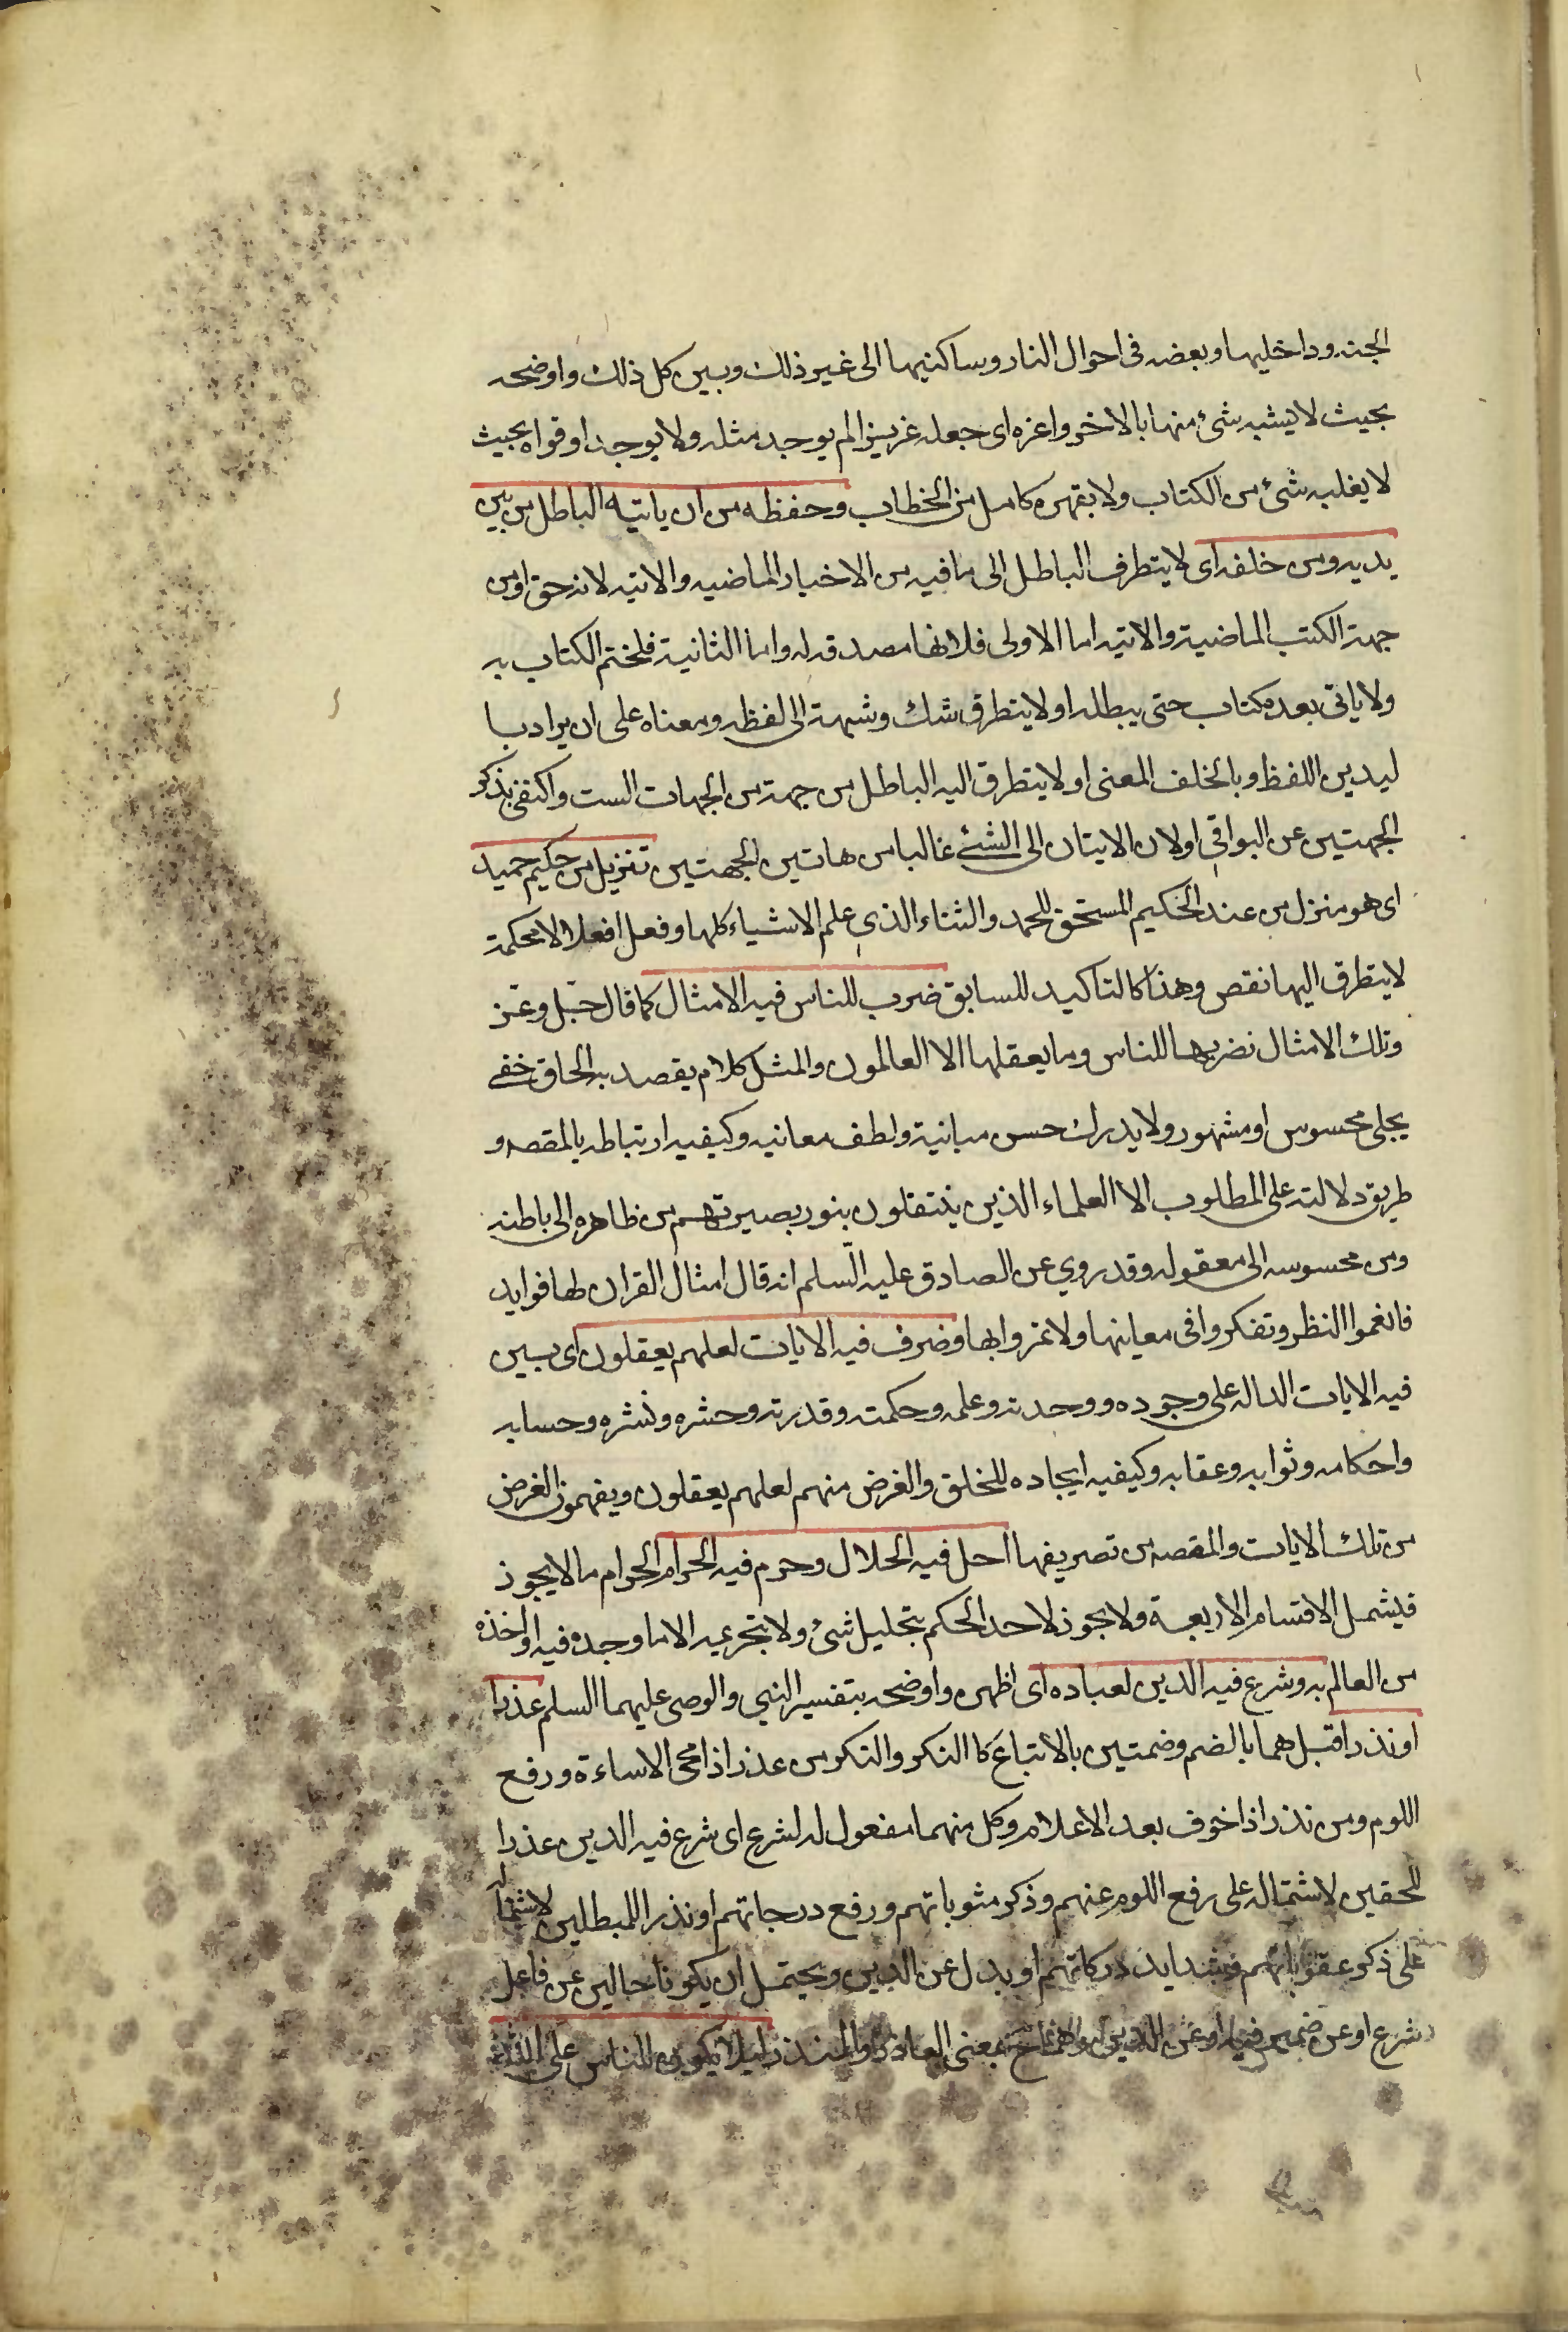 الجنه وداخليها وبعضه فى احوال النار وساكنيها الى غير ذلك وبين كل ذلك واوضحه
بحيث لايشبه شئ منها بالاخر واعزه اى جعله عزيزا لم يوجد مثله ولا يوجد او قواه بحيث
لا يغلبه شئ من الكتاب ولا يقهره كامل من الخطاب وحفظه من ان ياتيه الباطل من بين
يديه ومن خلفه اى لا يتطرف الباطل الى ما فيه من الاخبار الماضيه والاتيه لانه حق او من
جهة الكتب الماضية والاتيه اما الاولى فلانها مصدقه له واما الثانية فلختم الكتاب به
ولا ياتى بعده كتاب حتى يبطله او لا يتطرق شك وشبهة الى لفظه ومعناه على ان يراد با
ليدين اللفظ وبالخلف المعنى او لا يتطرق اليه الباطل من جهة من الجهات الست واكتفى بذكر
الجهتين عن البواقى اولان الاتيان الى الشئ غالبا من هاتين الجهتين تنزيل من حكيم حميد
اى هو منزل من عند الحكيم المستحق للحمد والثناء الذى علم الاشياء كلها وفعل افعالا محكمة
لا يتطرق اليها نقص وهذا كالتاكيد للسابق ضرب للناس فيه الامثال كما قال جّل وعّز
وتلك الامثال نضربها للناس وما يعقلها الا العالمون والمثل كلام يقصد به الحاق خفى
بجلى محسوس او مشهور ولا يدرك حسن مبانية ولطف معانيه وكيفيه ارتباطه بالمقصه و
طريق دلالته على المطلوب الا العلماء الذين ينتقلون بنور بصيرتهم من ظاهره الى باطنه
ومن محسوسه الى معقوله وقد روي عن الصادق عليه السّلم انه قال امثال القران لها فوايد
فانغموا النظر وتفكروا فى معاينها ولا تمزوا بها وضرف فيه الايات لعلهم يعقلون اى بين
فيه الايات الداله على وجوده ووحدته وعلمه وحكمته وقدرته وحشره ونشره وحسابه
واحكامه وثوابه وعقابه وكيفيه ايجاده للخلق والغرض منهم لعلهم يعقلون ويفهمون الغرض
من تلك الايات والمقصه من تصريفها احل فيه الحلال وحرم فيه الحرام الحرام ما لا يجوذ
فيشمل الاقسام الاربعة ولا يجوذ لاحد الحكم بتحليل شئ ولا بتحريمه الا ما وجده فيه او اخذه
من العالم به وشرع فيه الدين لعباده اى اظهره واوضحه بتفسير النبي والوصى عليهما السلم عذرا
او نذرا قيل هما بالضم وضمتين بالاتباع كا النكر والنكر من عذر اذا محى الاساءة ورفع
اللوم ومن نذر اذا خوف بعد الاعلام وكل منهما مفعول له لشرع اى شرع فيه الدين عذرا
للمحقين لاشتماله على رفع اللوم عنهم وذكر مثوباتهم ورفع درجاتهم او نذرا للمبطلين لاشتماله
على ذكر عقوباتهم وشدايد دركاتهم او بدل عن الدين ويحتمل ان يكونا حالين عن فاعل
شرع او عن ضمير فيه او عن الدين بمعنى العاذر والمنذر ليلا يكون للناس على الله